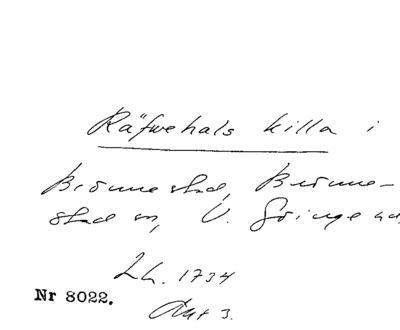 Räfwehals källa i
Brönnestad, Brönne-
stad sn, V. Göinge hd,
Lh. 1734
Nr 8022.
Akt 3.